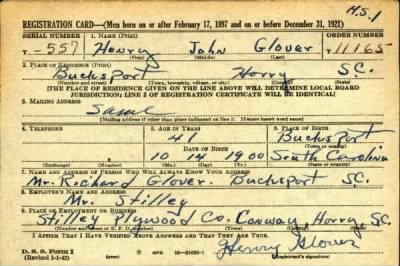 H.S.1
REGISTRATION CARD—(Men born on or after February 17, 1897 and on or before December 31, 1921)
SERIAL NUMBER 1. NAME (Print) ORDER NUMBER
T-557 Henry John Glover T11165
(First) (Middle) (Last)
2. PLACE OF RESIDENCE (Print)
Bucksport Horry S.C.
(Number and street) (Town, township, village, or city) (County) (State)
[THE PLACE OF RESIDENCE GIVEN ON THE LINE ABOVE WILL DETERMINE LOCAL BOARD
JURISDICTION; LINE 2 OF REGISTRATION CERTIFICATE WILL BE IDENTICAL]
3. MAILING ADDRESS
Same
[Mailing address if other than place indicated on line 2. If same insert word same]
4. TELEPHONE 5. AGE IN YEARS 6. PLACE OF BIRTH
41 Bucksport
DATE OF BIRTH (Town or county)
10 14 1900 South Carolina
(Exchange) (Number) (Mo.) (Day) (Yr.) (State or country)
7. NAME AND ADDRESS OF PERSON WHO WILL ALWAYS KNOW YOUR ADDRESS
Mr. Richard Glover. Bucksport S.C.
8. EMPLOYER'S NAME AND ADDRESS
Mr. Stilley
9. PLACE OF EMPLOYMENT OR BUSINESS
Stilley Plywood Co. Conway, Horry, S.C.
(Number and street or R. F. D. number) (Town) (County) (State)
I AFFIRM THAT I HAVE VERIFIED ABOVE ANSWERS AND THAT THEY ARE TRUE.
D. S. S. Form 1
(Revised 1-1-42) (over) Henry Glover
(Registrant's signature)